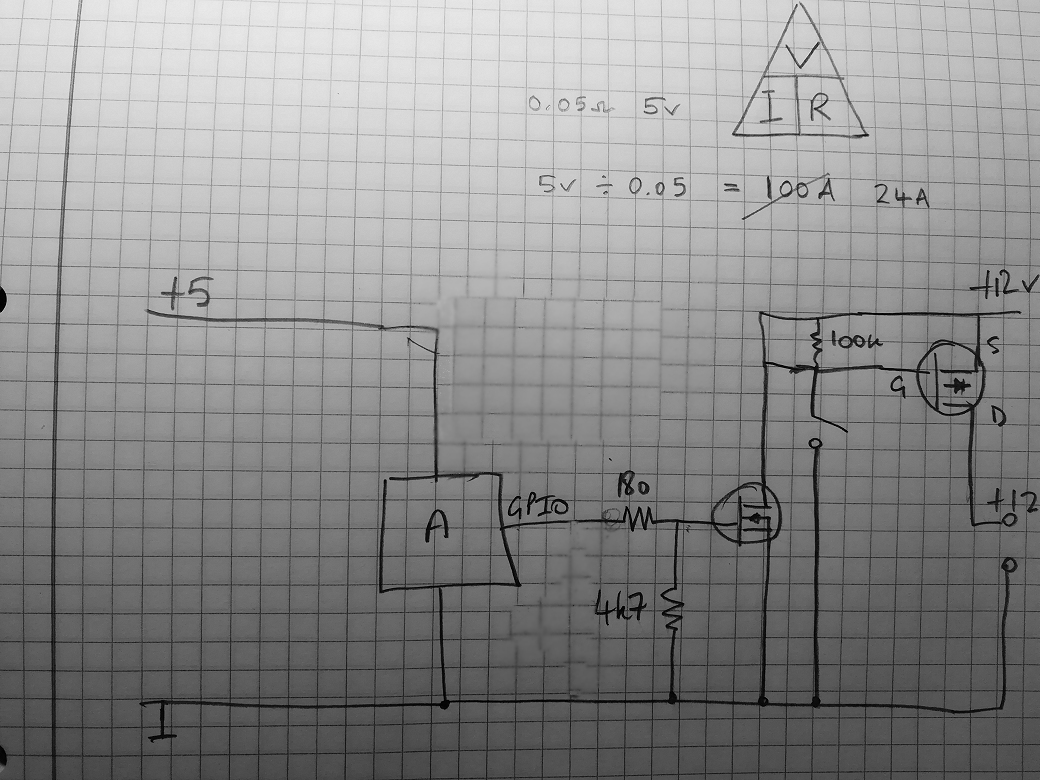 V
I R
0.05Ω 5v
5v ÷ 0.05 = 100A 24A
+5
+12v
100k
S
G
D
180
GPIO
+12
A
4k7
I